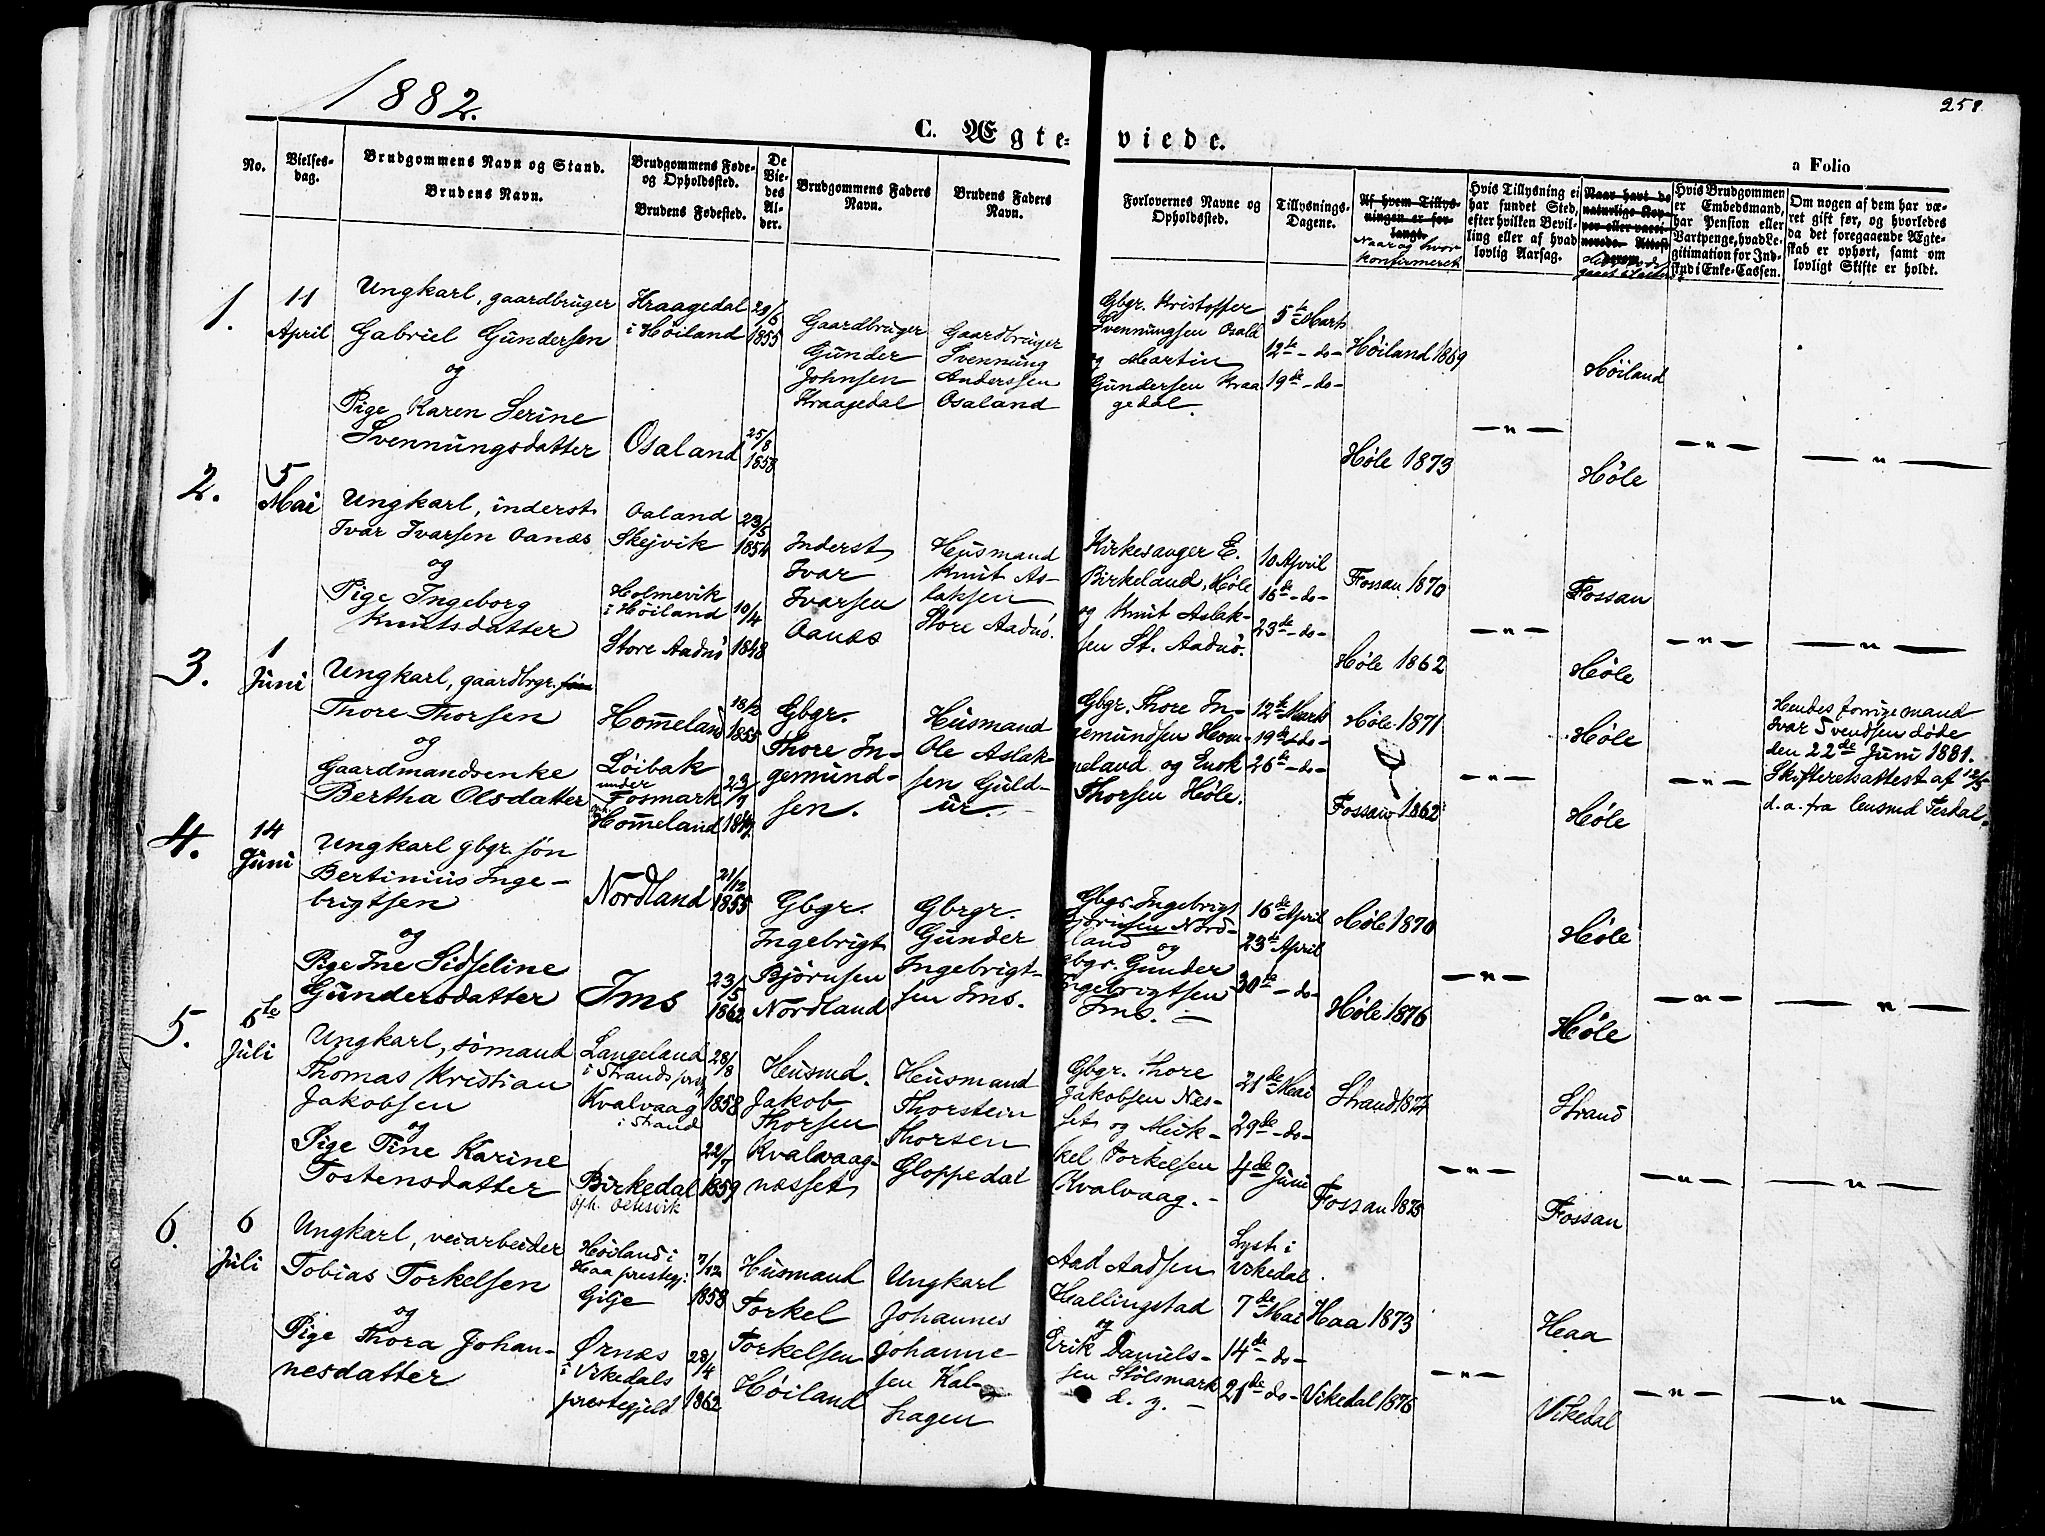 1882.
258
C. Ægte-
viede.
a Folio
No.
Vielses-
dag.
Brudgommens Navn og Stand.
Brudens Navn.
Brudgommens Føde-
og Opholdssted.
Brudens Fødested.
De
Vie-
des
Al-
der.
Brudgommens Faders
Navn.
Brudens Faders
Navn.
Forlovernes Navne og
Opholdssted.
Tillysnings-
Dagene.
Af hvem Tillys-
ningen er for-
langt.
Naar og hvor
konfirmeret
Hvis Tillysning ei
har fundet Sted,
efter hvilken Bevil-
ling eller af hvad
lovlig Aarsag.
Naar havt de
naturlige Kop-
per eller vacci-
nerede. Attest
Hvis Brudgommen
er Embedsmand,
har Pension eller
Vartpenge, hvad Le-
gitimation for Ind-
skud i Enke-Cassen.
Om nogen af dem har væ-
ret gift før, og hvorledes
da det foregaaende Ægte-
skab er ophørt, samt om
lovligt Skifte er holdt.
1.
11
April
Ungkarl, gaardbruger
Gabriel Gundersen
og
Pige Karen Serine
Svennungsdatter
Kraagedal
i Høiland
Osaland
1855
25/8
1858
Gaardbruger
Gunder
Johnsen
Kraagedal
Gaardbruger
Svennung
Anderssen
Osaland
Gbgr. Kristoffer
Svenningsen Osald
og Martin
Gundersen Kraa
gedal.
5te Marts
12te - do -
19de - do -
Høiland 1869
Høle 1873
— " —
Høiland
Høle
— " —
— " —
2.
5
Mai
Ungkarl, inderst
Ivar Ivarsen Oanæs
og
Pige Ingeborg
Knutsdatter
Oaland
Skejvik
Holmevik
i Høiland
Store Aadnø
23/5
1854
10/4
1848
Inderst
Ivar
Ivarsen
Oanæs
Husmand
Knut As-
laksen
Store Aadnø.
Kirkesanger E.
Birkeland, Høle
og Knut Aslak-
sen St. Aadnø.
10 April
16de - do -
23de - do -
Fossan 1870
Høle 1862
— " —
Fossan
Høle
— " —
— " —
3.
1
Juni
Ungkarl, gaardbrgr. søn
Thore Thorsen
og
Gaardmandsenke
Bertha Olsdatter
Hommeland
Løibak
under
Fosmark
Hommeland
1855
Gbgr.
Thore In-
gemund-
sen.
Husmand
Ole Aslak-
sen Guld-
ur.
Gbgr. Thore In-
gemundsen Hom-
meland og Enok
Thorsen Høle.
12te Marts
19de - do -
26de - do -
Høle 1871
Fossan 1862
— " —
Høle
Høle
— " —
Hendes forrige mand
Ivar Svendsen døde
den 22de Juni 1881.
Skifteretsattest af 12/5
d. a. fra lensmd Tesdal.
4.
14
Juni
Ungkarl gbgr. søn
Bertinius Inge-
brigtsen
og
Pige Ine Sidseline
Gundersdatter
Nordland
Ims
21/12
1855
23/5
1862
Gbgr.
Ingebrigt
Bjørnsen
Nordland
Gbrgr.
Gunder
Ingebrigt-
sen Ims.
Gbgr. Ingebrigt
Bjørnsen Nord-
land og
Gbgr. Gunder
Ingebrigtsen
Ims. —
16de April
23de April
30te - do -
Høle 1870
Høle 1876
— " —
Høle
Høle
— " —
— " —
5.
6te
Juli
Ungkarl, sømand
Thomas Kristian
Jakobsen
og
Pige Tine Karine
Tostensdatter
Langeland
i Strands prg
Kvalvaag
i Strand
Birkedal
28/8
1858
22/7
1859
Husmd.
Jakob
Thorsen
Kvalvaag-
næsset
Husmand
Thorstein
Thorsen
Gloppedal
Gbgr. Thore
Jakobsen Nes-
set og Mik-
kel Torkelsen
Kvalvaag. -
21de Mai
29de - do -
4de Juni
Strand 1874
Fossan 1875
— " —
Strand
Fossan
— " —
— " —
6.
6
Juli
Ungkarl, veiarbeider
Tobias Torkelsen
og
Pige Thora Johan-
nesdatter
Høiland i
Haa prestegj.
Gilje
Ørnæs
i Vikedals
prestegjeld
7/12
1858
28/4
1862
Husmand
Torkel
Torkelsen
Høiland
Ungkarl
Johannes
Johanne-
sen Kal-
hagen
Aad Aadsen
Hallingstad
og
Erik Daniels-
sen Stølsmark
d. y. —
Lyst i
Vikedal
7de Mai
14de - do -
21de do -
Haa 1873
Vikedal 1876
— " —
Haa
Vikedal
— " —
— " —